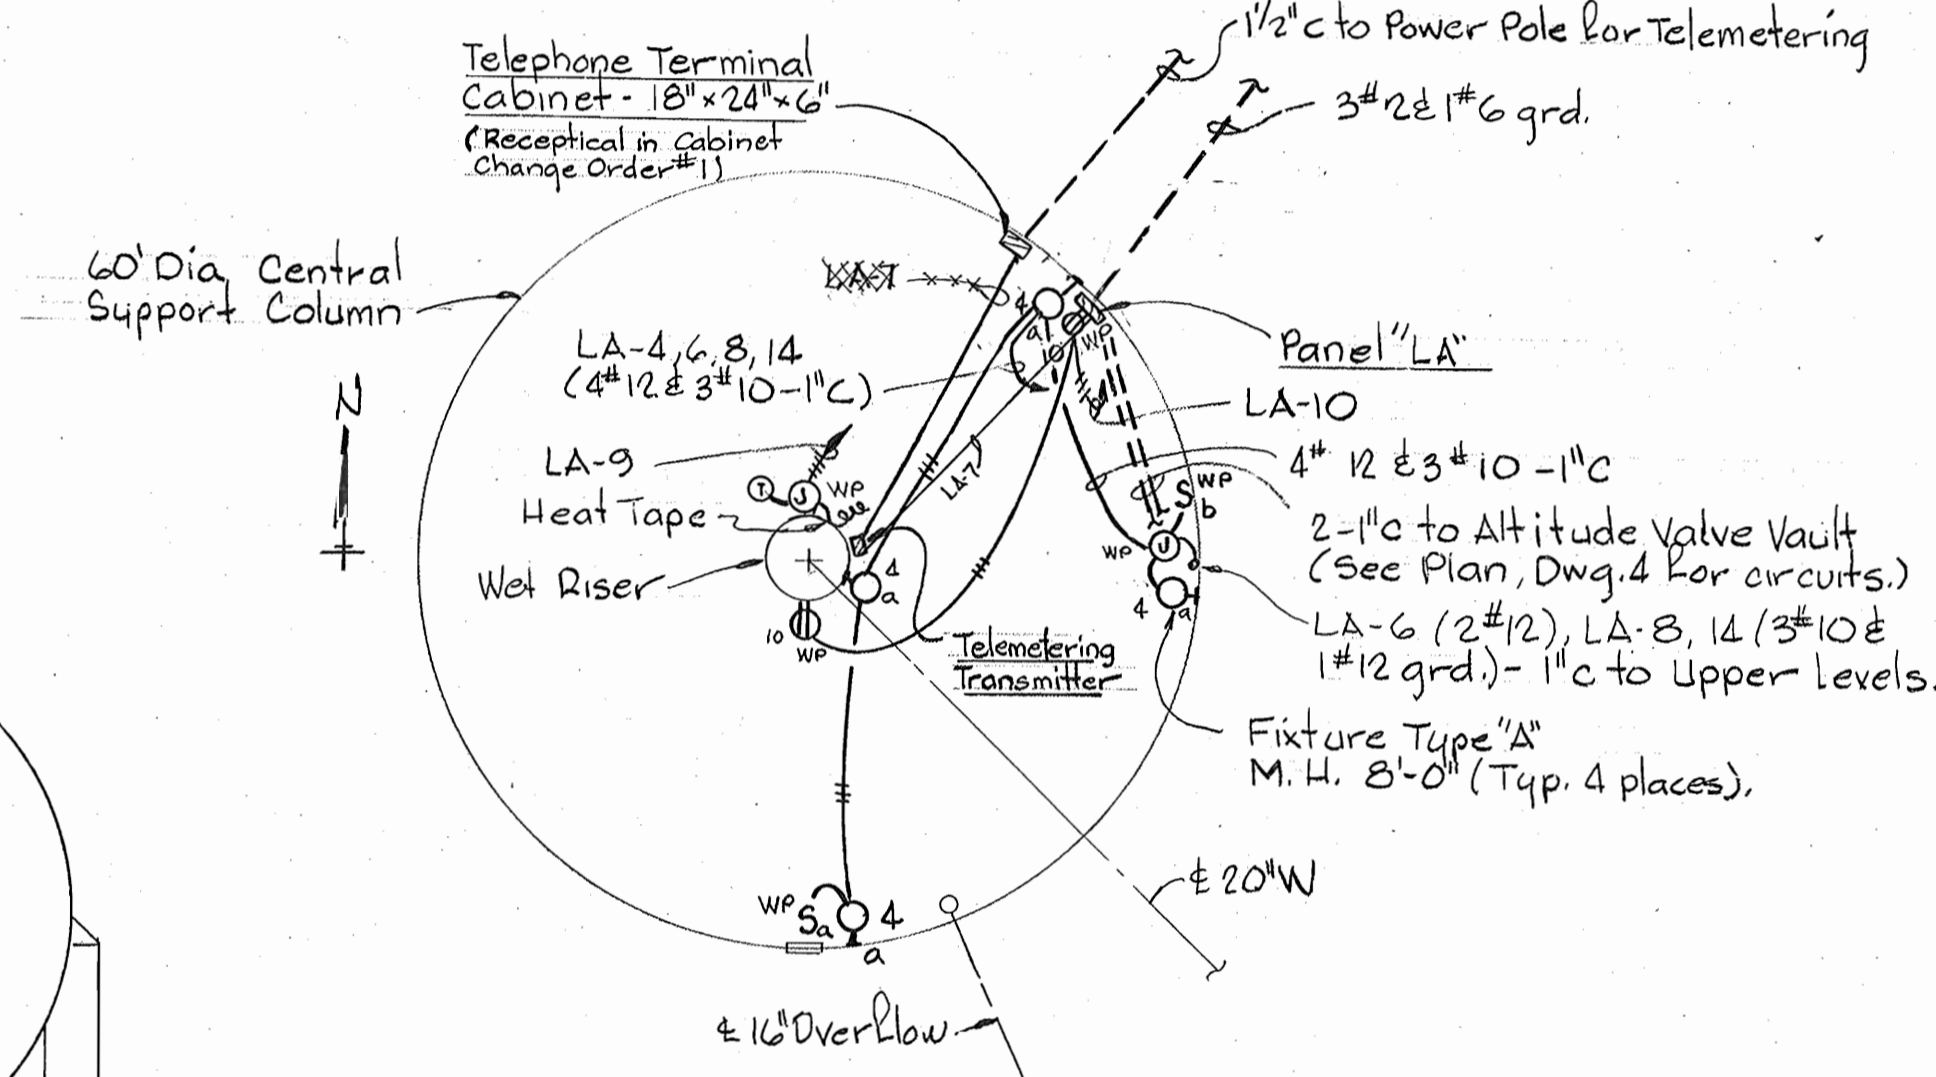 1½"c to Power Pole for Telemetering
Telephone Terminal
Cabinet - 18"x24"x6"
(Receptical in Cabinet
Change Order #1)
3#2 & 1#6 grd.
60' Dia. Central
Support Column
LA-7
4
a
WP
10
Panel "LA"
LA-4,6,8,14
(4#12 & 3#10-1"C)
N
LA-10
LA-9
LA-7
4#12 & 3#10-1"C
T
J
WP
S WP
b
Heat Tape
2-1"c to Altitude Valve Vault
(See Plan, Dwg. 4 for circuits.)
WP
J
Wet Riser
4
a
4
a
LA-6 (2#12), LA-8, 14 (3#10 &
1#12 grd.)- 1"c to Upper Levels.
10
WP
Telemetering
Transmitter
Fixture Type "A"
M.H. 8'-0" (Typ. 4 places).
℄ 20"W
WP
Sa
4
a
℄ 16" Overflow